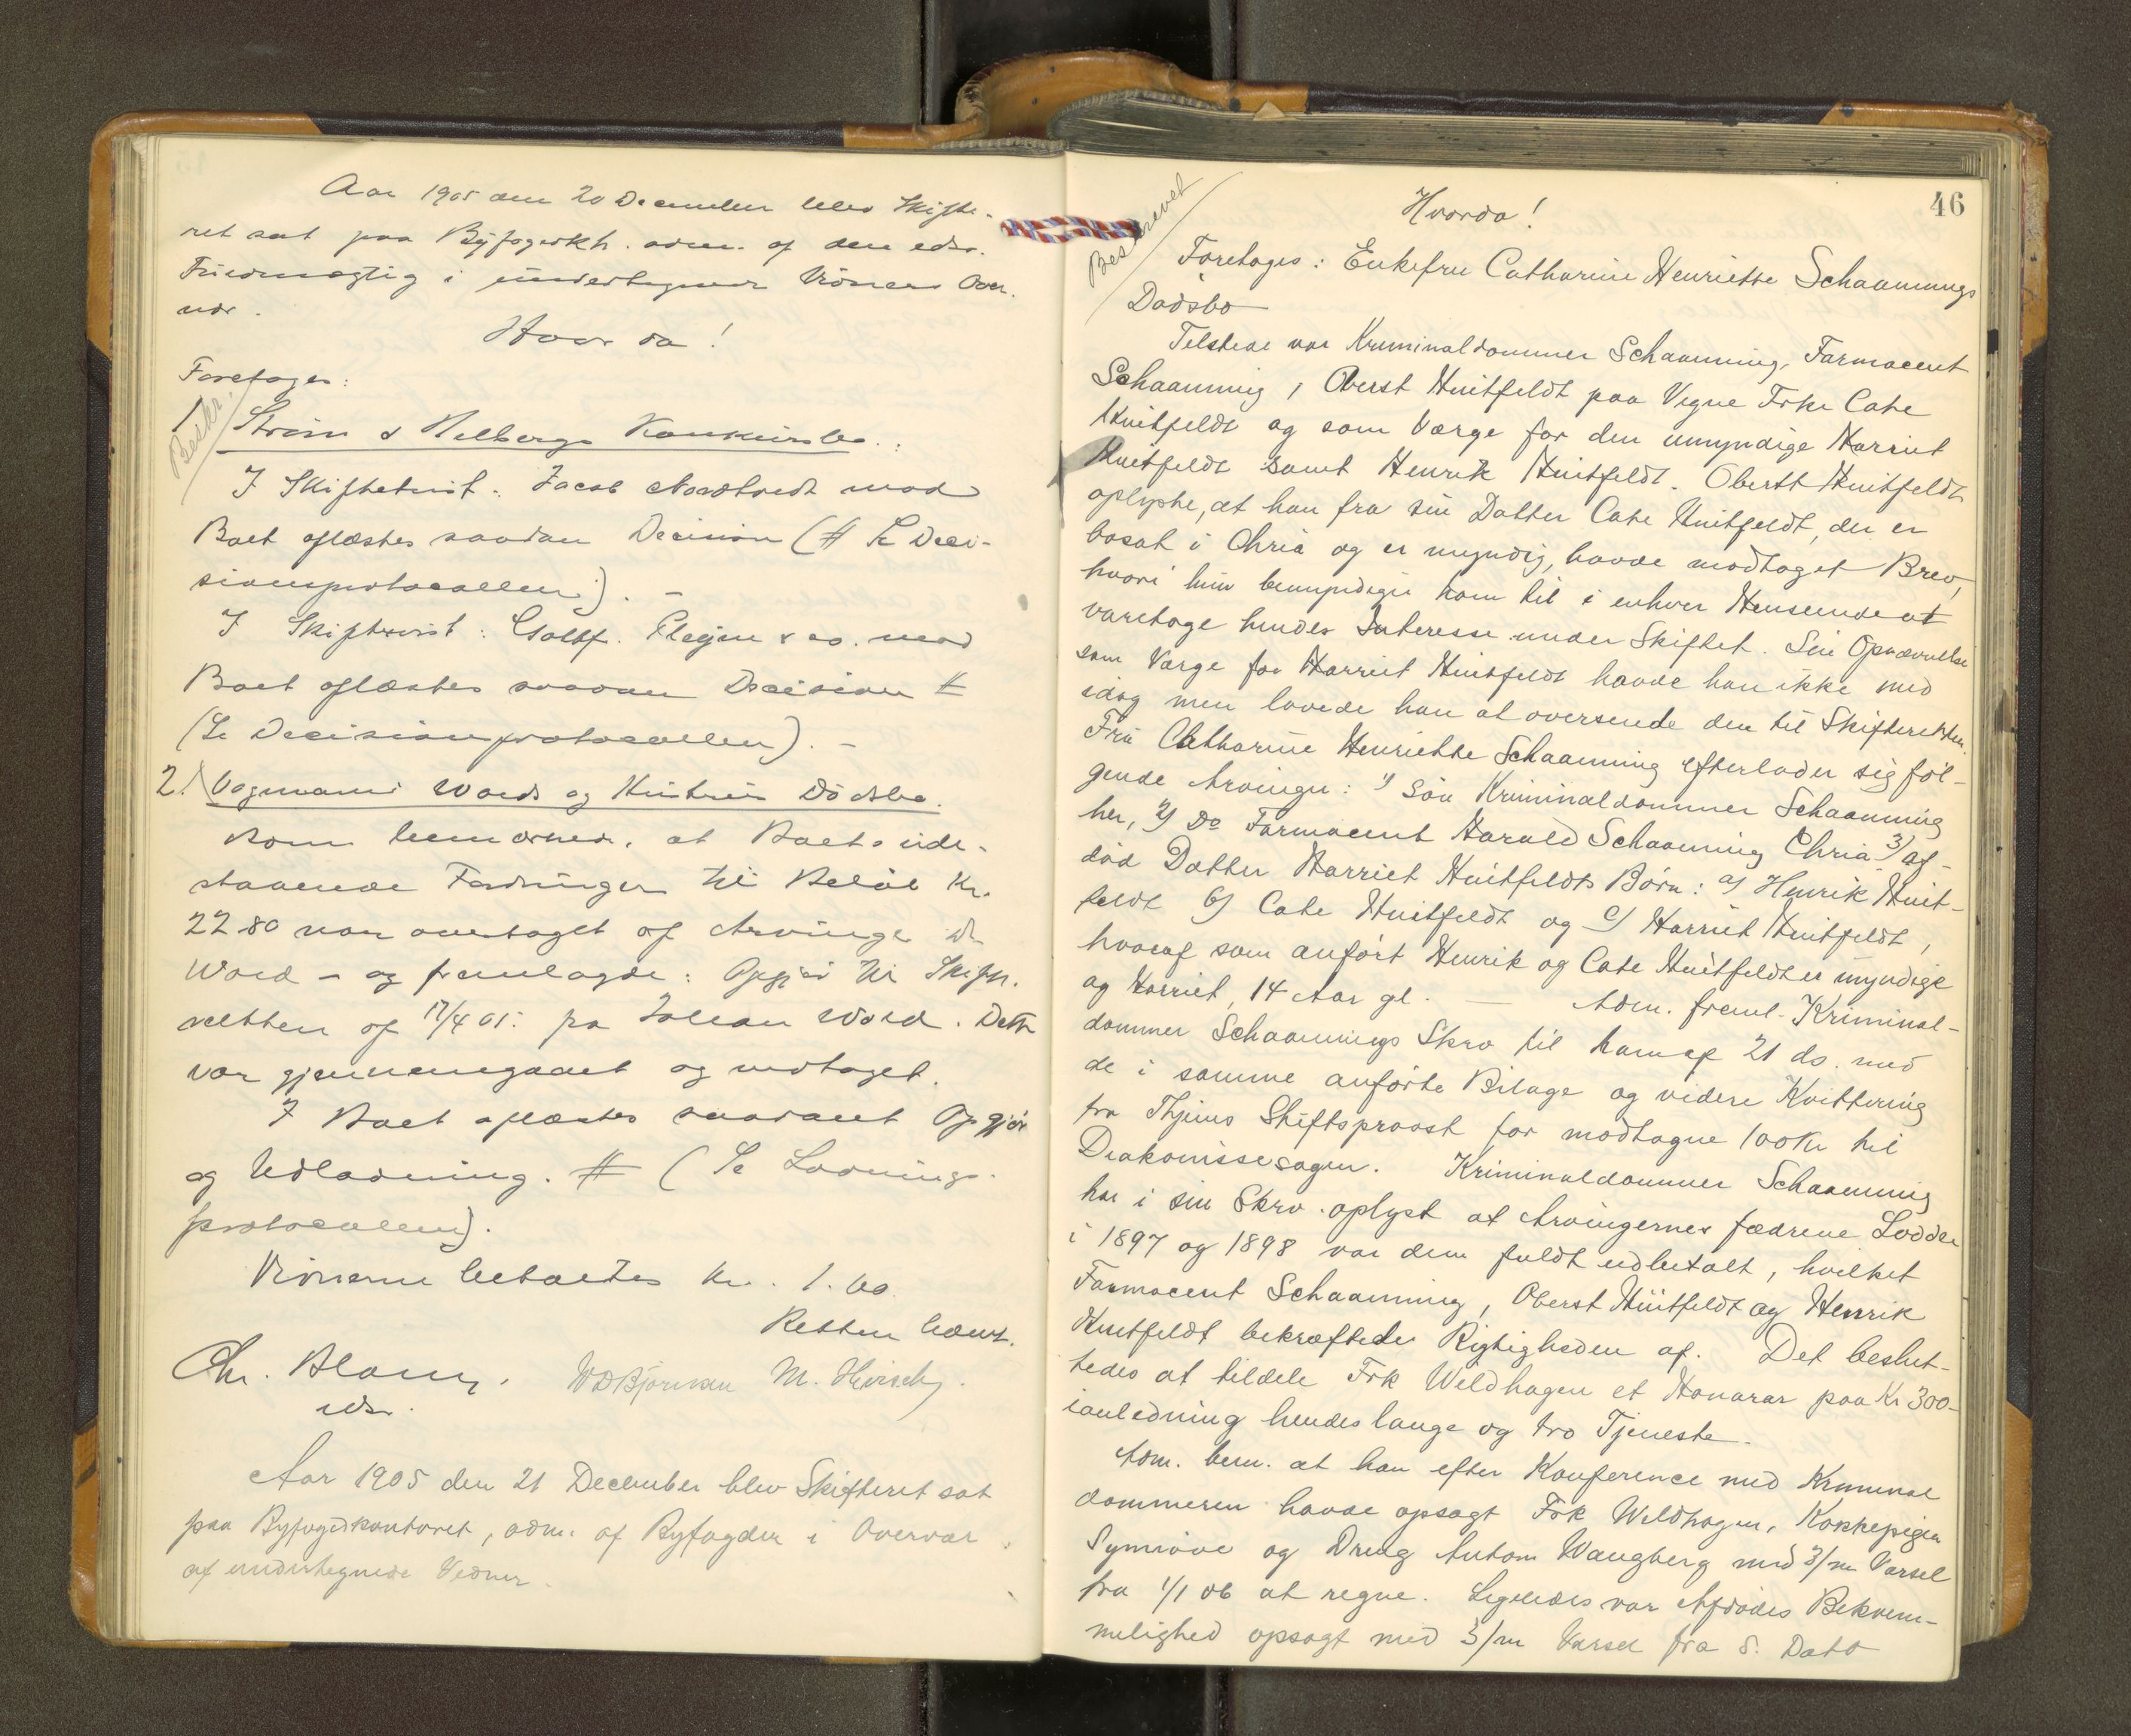 Aar 1905 den 20 December blev Skifte-
ret sat paa Byfogedkt. adm. af den edsv.
Fuldmægtig i undertegnede Vidners Over-
vær.
Hvor da!
Foretages:
Beskr.
1/ Strøm & Helbergs Konkursbo:
I Skiftetvist: Jacob Nordtvedt mod
Boet oplæstes saadan Decision (# Se Deci-
sionsprotocollen). -
I Skifttvist: mod
Boet oplæstes saadan Decision #
(Se Decisionsprotocollen). -
2/ Vognmand Wolds og Hustrus Dødsbo.
som bemærkede, at Boets ude-
staaende Fordringer til Beløb Kr.
22 80 var overtaget af Arvinge
Wold - og fremlagde: Opgjør til Skifte-
retten af 17/4 05. fra Johan Wold. Dette
var gjennemgaaet og vedtaget.
I Boet oplæstes saadant Opgjør
og Udlodning. # (Se Lodnings-
protocollen).
Vidnerne betaltes Kr. 1.60.
Retten hævet.
Chr. Blom, W D Bjørnsen M. Hirsch.
edsv.
Aar 1905 den 21 December blev Skifteret sat
paa Byfogedkontoret, adm. af Byfogden i Overvær
af undertegnede Vidner.
46
Beskrevet
Hvorda!
Foretoges: Enkefru Catharine Henriette Schaannings
Dødsbo
Tilstede var Kriminaldommer Schaanning, Farmaceut
Schaanning, Oberst Huitfeldt paa Vegne Frk. Cate
Huitfeldt og som Værge for den umyndige Harriet
Huitfeldt samt Henrik Huitfeldt. Oberst Huitfeldt
oplyste, at han fra sin Datter Cate Huitfeldt, der er
bosat i Chria og er myndig, havde modtaget Brev,
hvori hun bemyndiger ham til i enhver Henseende at
varetage hendes Interesse under Skiftet. Sin Opnævnelse
som Værge for Harriet Huitfeldt havde han ikke med
idag men lovede han at oversende den til Skifteretten.
Fru Catharine Henriette Schaanning efterlader sig føl-
gende Arvinger: 1) Søn Kriminaldommer Schaanning
her, 2) Do Farmaceut Harald Schaanning Chria 3) af-
død Datter Harriet Huitfeldts Børn: a) Henrik Huit-
feldt b) Cate Huitfeldt og c) Harriet Huitfeldt,
hvoraf som anført Henrik og Cate Huitfeldt er myndige
og Harriet, 14 Aar gl. — Adm. freml. Kriminal-
dommer Schaannings Skrv til ham af 21 ds. med
de i samme anførte Bilage og videre Kvittering
fra Thjems Stiftsprovst for modtagne 100 Kr til
Diakonissesagen. Kriminaldommer Schaanning
har i sin Skrv. oplyst at Arvingernes fædrene Lodder
i 1897 og 1898 var dem fuldt udbetalt, hvilket
Farmaceut Schaanning, Oberst Huitfeldt og Henrik
Huitfeldt bekræftede Rigtigheden af. Det beslut-
tedes at tildele Frk Weldhagen et Honorar paa Kr 300-
ianledning hendes lange og tro Tjeneste.
Adm. bem. at han efter Konference med Kriminal
dommeren havde opsagt Frk Weldhagen, Kokkepigen
Synnøve og Dreng Antom Wangberg med 3/m Varsel
fra 1/1 06 at regne. Ligeledes var Afdødes Bekvem-
melighed opsagt med 3/m Varsel fra S. Dato